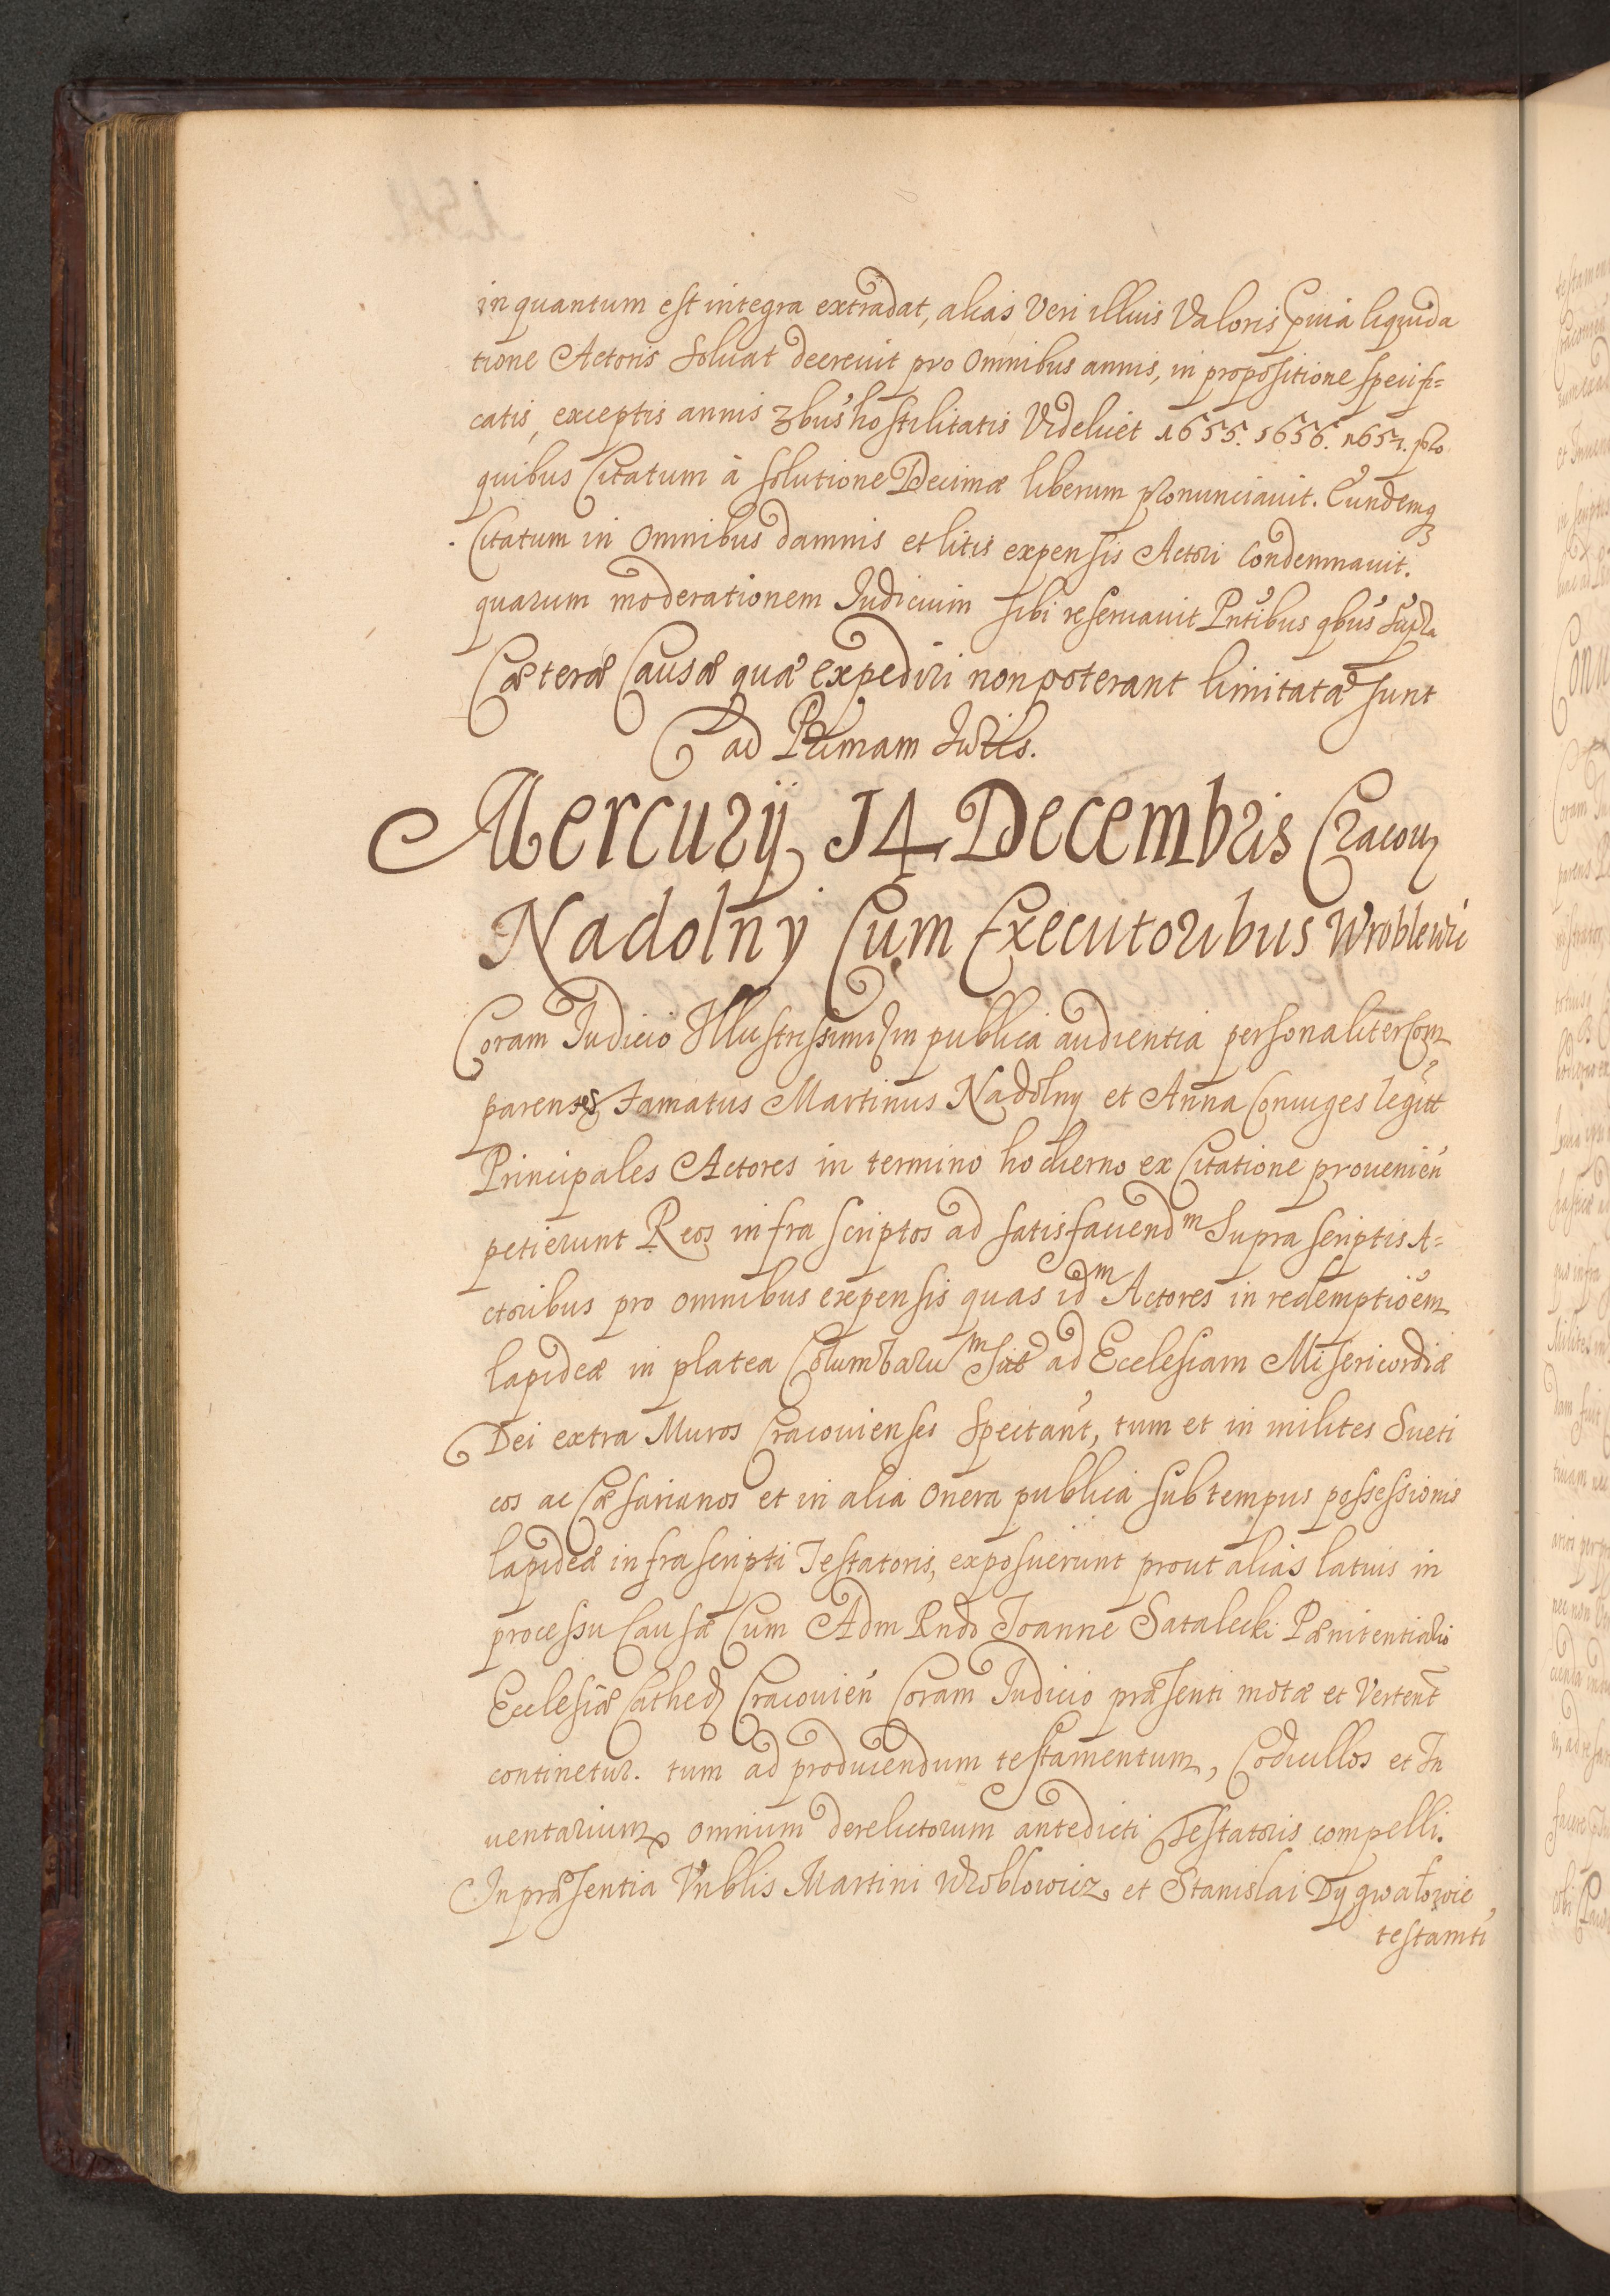 in quantum est integra extradat, alias Veri illius Valoris pvia liquida
tione Actoris soluat decreuit pro Omnibus annis, in propositione specifi=
catis, exceptis annis 3bus hostilitatis Videlicet 1655. 1656. 1657. pro
quibus Citatum à solutione Decimæ liberum pronunciauit. Eundemq
Citatum in Omnibus damnis et litis expensis Actori Condemnauit.
quarum moderationem Iudicium sibi reseruauit Pntibus qbus supra
Cæteræ Causæ quæ expediri non poterant limitatæ sunt
ad Primam Iurils.
Mercurÿ 14 Decembris Cracou
Nadolny Cum Executoribus Wroblewic
Coram Iudicio Illustrissimi in publica audientia personaliter Com
parentes Famatus Martinus Nadolny et Anna Coniuges legitt
Principales Actores in termino hodierno ex Citatione prouenien
petierunt Reos infra scriptos ad satisfaciendm Supra scriptis A=
ctoribus pro omnibus expensis quas idm Actores in redemptioem
lapideæ in platea Columbarum Sitæ ad Ecclesiam Misericordiæ
Dei extra Muros Cracouienses Spectant, tum et in milites Sueti
cos ac Cæsarianos et in alia Onera publica sub tempus possessionis
lapideæ infrascripti Testatoris, exposuerunt prout alias latius in
processu Causæ Cum Adm Rndo Joanne Satalecki Pænitentiario
Ecclesiæ Cathed Cracouien Coram Iudicio præsenti motæ et Vertent
continetur. tum ad producendum testamentum, Codicillos et In
uentarium omnium derelictorum antedicti Testatoris compelli.
In præsentia Vnblis Martini Wroblowicz et Stanislai Dygwałowic
testamti